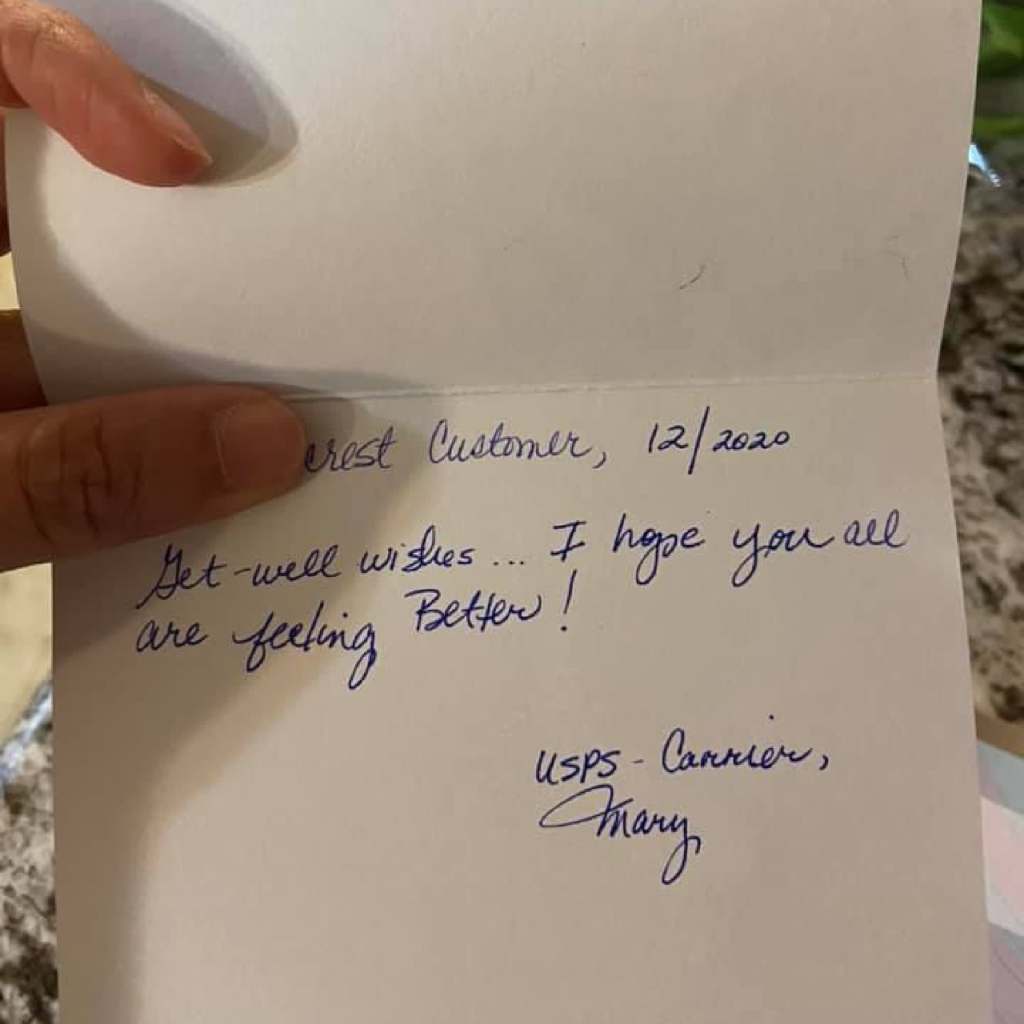 erest Customer, 12/2020
Get-well wishes... I hope you all
are feeling Better!
USPS - Carrier,
Mary